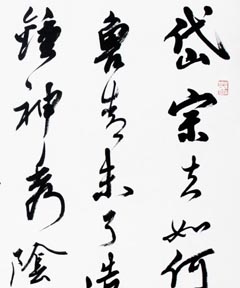 岱宗夫如何
魯青未了造
鍾神秀陰